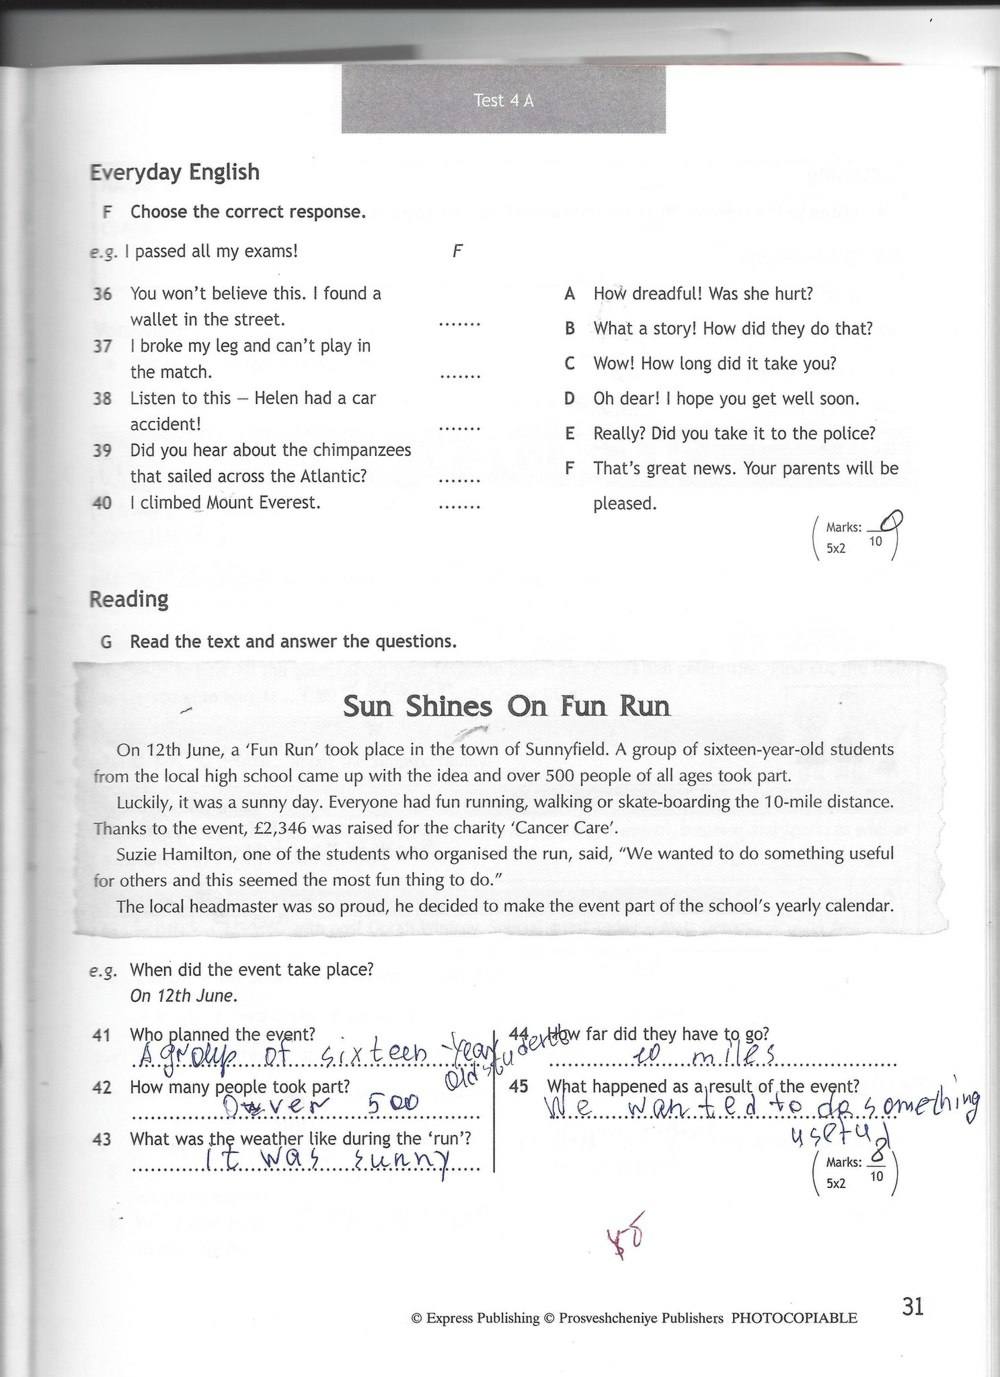 Test 4 A
Everyday English
F Choose the correct response.
e.g. I passed all my exams! F
36 You won't believe this. I found a
wallet in the street. .......
37 I broke my leg and can't play in
the match. .......
38 Listen to this – Helen had a car
accident! .......
39 Did you hear about the chimpanzees
that sailed across the Atlantic? .......
40 I climbed Mount Everest. .......
A How dreadful! Was she hurt?
B What a story! How did they do that?
C Wow! How long did it take you?
D Oh dear! I hope you get well soon.
E Really? Did you take it to the police?
F That's great news. Your parents will be
pleased.
Marks: 0
5x2 10
Reading
G Read the text and answer the questions.
Sun Shines On Fun Run
On 12th June, a 'Fun Run' took place in the town of Sunnyfield. A group of sixteen-year-old students
from the local high school came up with the idea and over 500 people of all ages took part.
Luckily, it was a sunny day. Everyone had fun running, walking or skate-boarding the 10-mile distance.
Thanks to the event, £2,346 was raised for the charity 'Cancer Care'.
Suzie Hamilton, one of the students who organised the run, said, "We wanted to do something useful
for others and this seemed the most fun thing to do."
The local headmaster was so proud, he decided to make the event part of the school's yearly calendar.
e.g. When did the event take place?
On 12th June.
41 Who planned the event?
A group of sixteen-year
old students
42 How many people took part?
Over 500
43 What was the weather like during the 'run'?
It was sunny
44 How far did they have to go?
10 miles
45 What happened as a result of the event?
We wanted to do something
useful
Marks: 8
5x2 10
31
© Express Publishing © Prosveshcheniye Publishers PHOTOCOPIABLE